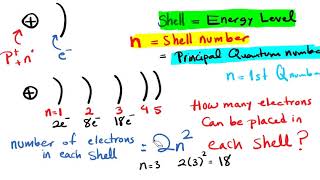 Shell = Energy Level
n = Shell number
= Principal Quantum number
n = 1st Q number
P⁺ + n°
e⁻
n=1 2 3 4 5
2e⁻ 8e⁻ 18e⁻
How many electrons
Can be placed in
each shell?
number of electrons
in each shell
= 2n²
n=3 2(3)² = 18